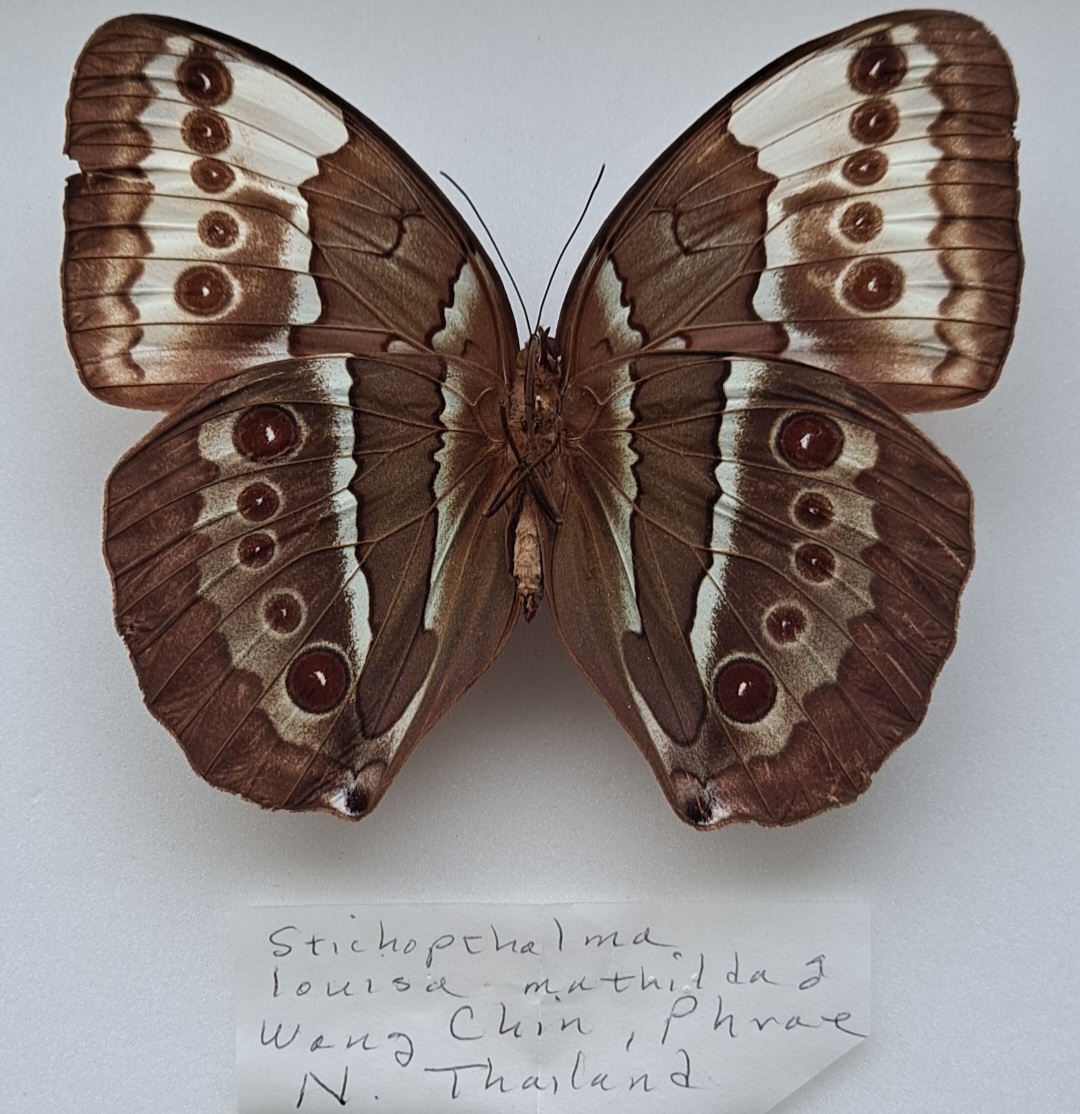 Stichopthalma
louisa mathilda ♂
Wang Chin, Phrae
N. Thailand